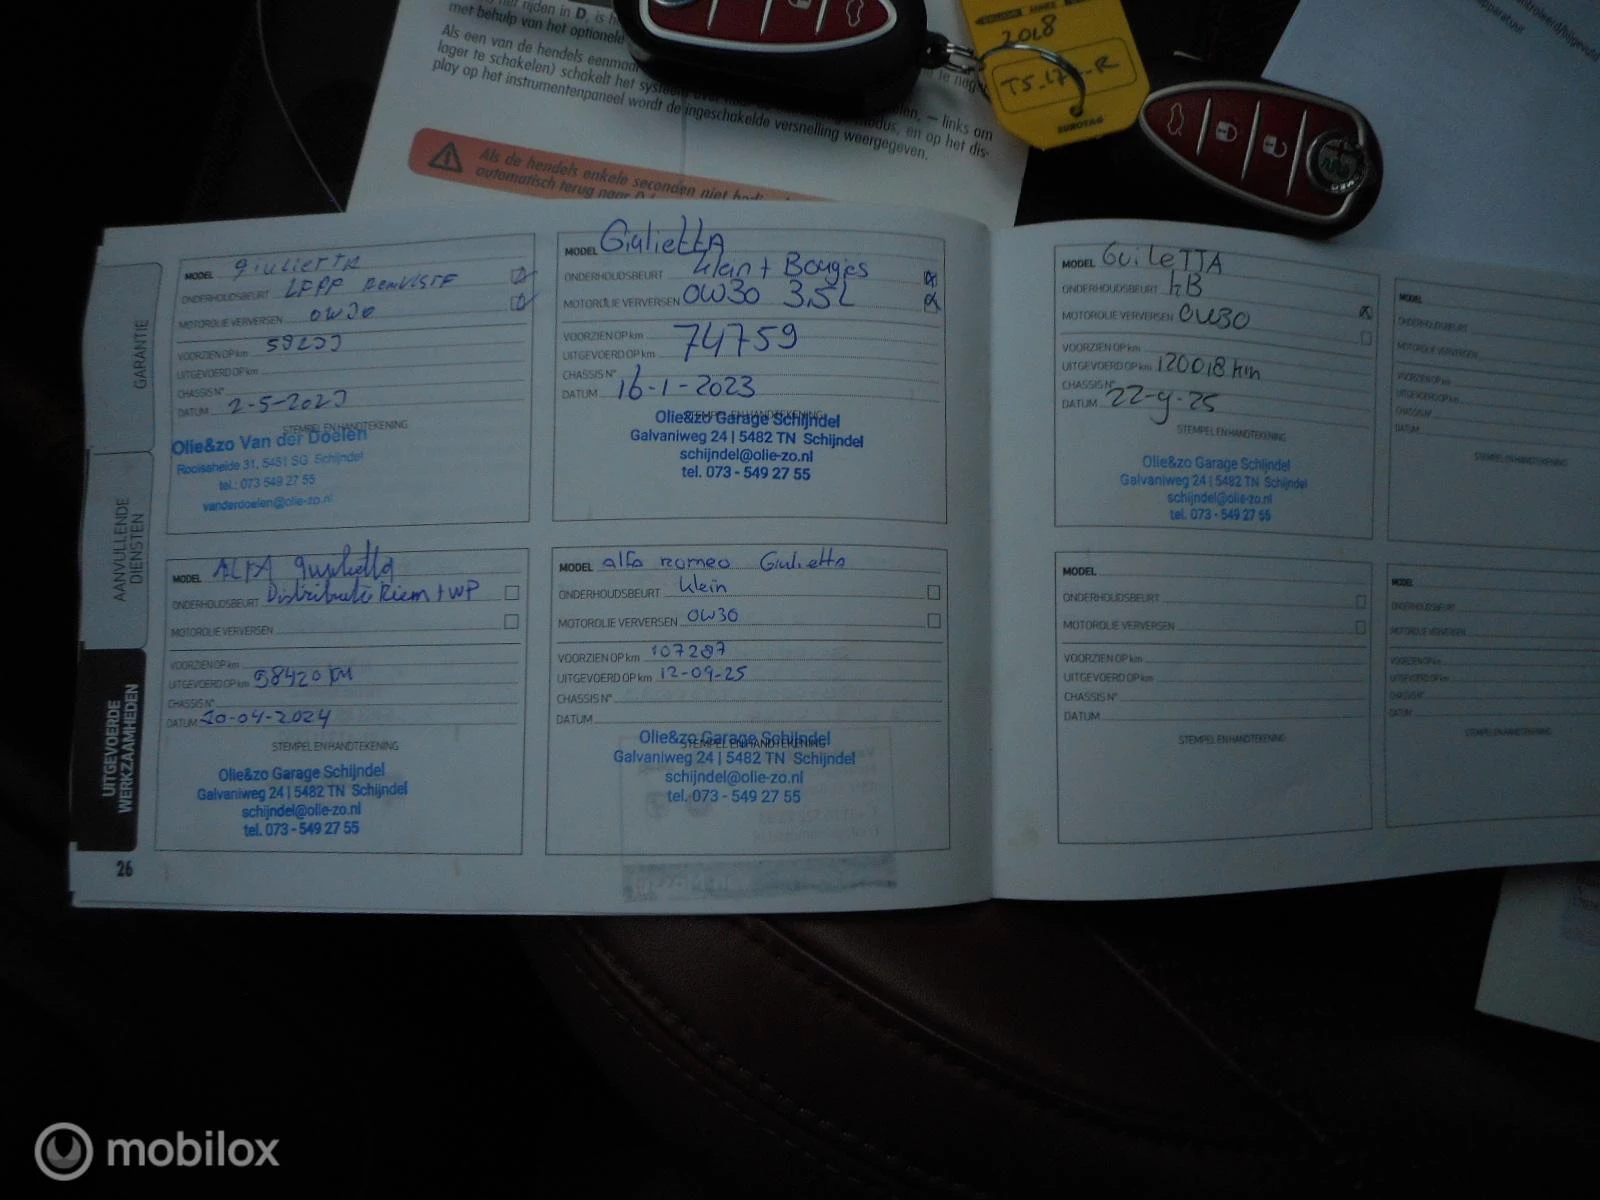 met behulp van het optionele
Als een van de hendels eenmaal
lager te schakelen) schakelt het systeem
play op het instrumentenpaneel wordt de ingeschakelde versnelling weergegeven.
links om
en op het dis-
Als de hendels enkele seconden niet
automatisch terug naar D
2018
TS-17 -R
EUROTAG
GARANTIE
AANVULLENDE
DIENSTEN
UITGEVOERDE
WERKZAAMHEDEN
MODEL giulietta
ONDERHOUDSBEURT
MOTOROLIE VERVERSEN 0W30
VOORZIEN OP km
UITGEVOERD OP km
CHASSIS N°
DATUM 2-5-202
STEMPEL EN HANDTEKENING
Olie&zo Van der Doelen
Rooiseheide 31, 5481 SG Schijndel
tel.: 073 549 27 55
vanderdoelen@olie-zo.nl
MODEL Giulietta
ONDERHOUDSBEURT klein + Bougies
MOTOROLIE VERVERSEN 0W30 3,5L
VOORZIEN OP km
UITGEVOERD OP km 74759
CHASSIS N°
DATUM 16-1-2023
STEMPEL EN HANDTEKENING
Olie&zo Garage Schijndel
Galvaniweg 24 | 5482 TN Schijndel
schijndel@olie-zo.nl
tel. 073 - 549 27 55
MODEL GuiLeTTA
ONDERHOUDSBEURT kB
MOTOROLIE VERVERSEN 0W30
VOORZIEN OP km
UITGEVOERD OP km 120018 km
CHASSIS N°
DATUM 22-9-25
STEMPEL EN HANDTEKENING
Olie&zo Garage Schijndel
Galvaniweg 24 | 5482 TN Schijndel
schijndel@olie-zo.nl
tel. 073 - 549 27 55
MODEL
ONDERHOUDSBEURT
MOTOROLIE VERVERSEN
VOORZIEN OP km
UITGEVOERD OP km
CHASSIS N°
DATUM
STEMPEL EN HANDTEKENING
MODEL ALFA giulietta
ONDERHOUDSBEURT Distributie Riem + WP
MOTOROLIE VERVERSEN
VOORZIEN OP km
UITGEVOERD OP km 98420 KM
CHASSIS N°
DATUM 10-04-2024
STEMPEL EN HANDTEKENING
Olie&zo Garage Schijndel
Galvaniweg 24 | 5482 TN Schijndel
schijndel@olie-zo.nl
tel. 073 - 549 27 55
MODEL alfa romeo Giulietta
ONDERHOUDSBEURT klein
MOTOROLIE VERVERSEN 0W30
VOORZIEN OP km 107287
UITGEVOERD OP km 12-09-25
CHASSIS N°
DATUM
STEMPEL EN HANDTEKENING
Olie&zo Garage Schijndel
Galvaniweg 24 | 5482 TN Schijndel
schijndel@olie-zo.nl
tel. 073 - 549 27 55
MODEL
ONDERHOUDSBEURT
MOTOROLIE VERVERSEN
VOORZIEN OP km
UITGEVOERD OP km
CHASSIS N°
DATUM
STEMPEL EN HANDTEKENING
MODEL
ONDERHOUDSBEURT
MOTOROLIE VERVERSEN
VOORZIEN OP km
UITGEVOERD OP km
CHASSIS N°
DATUM
STEMPEL EN HANDTEKENING
26
mobilox